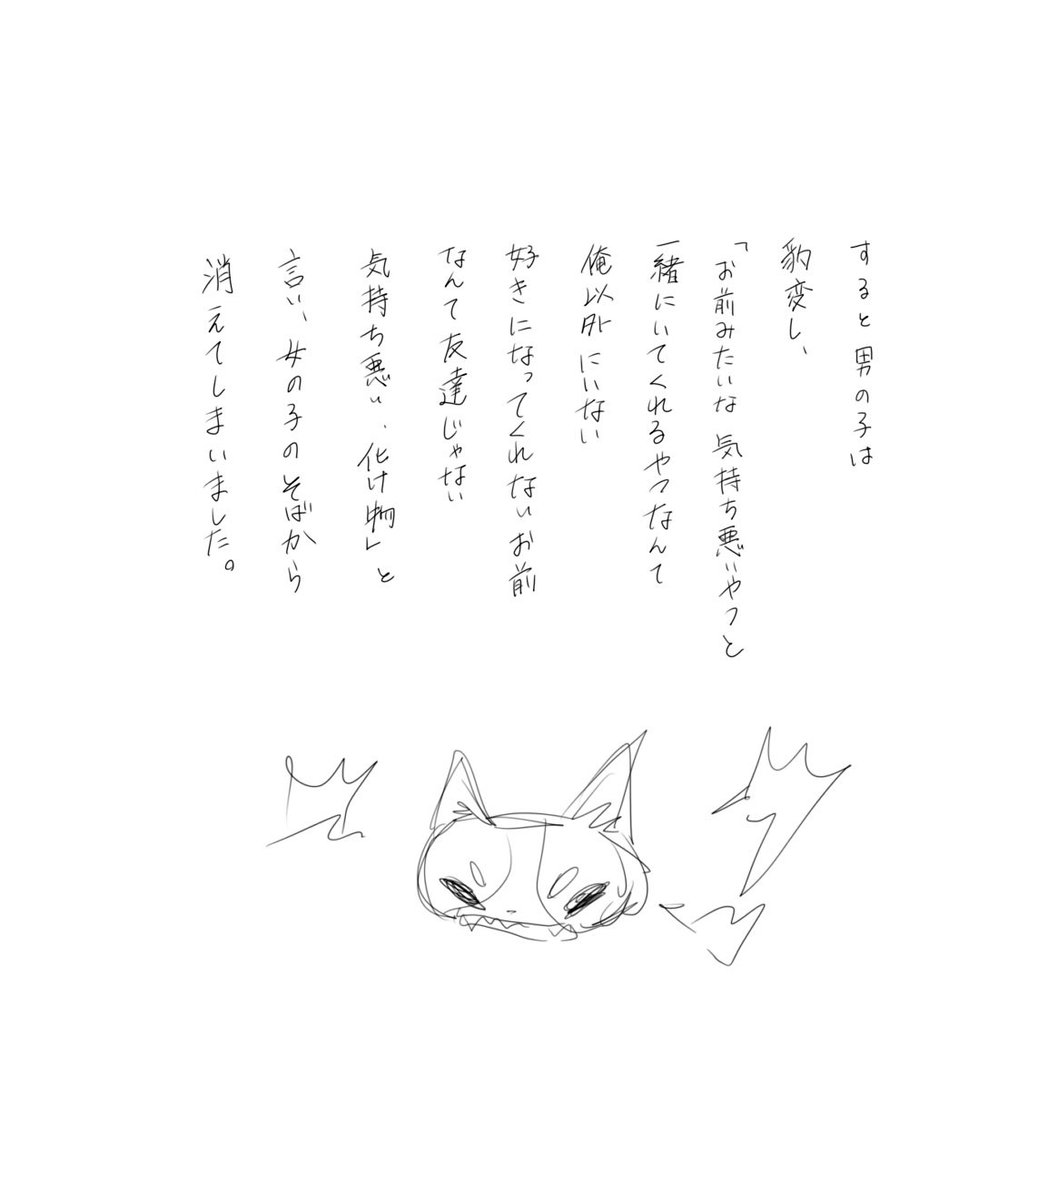 すると男の子は
豹変し、
「お前みたいな気持ち悪いやつと
一緒にいてくれるやつなんて
俺以外にいない
好きになってくれないお前
なんて友達じゃない
気持ち悪い、化け物」と
言い、女の子のそばから
消えてしまいました。